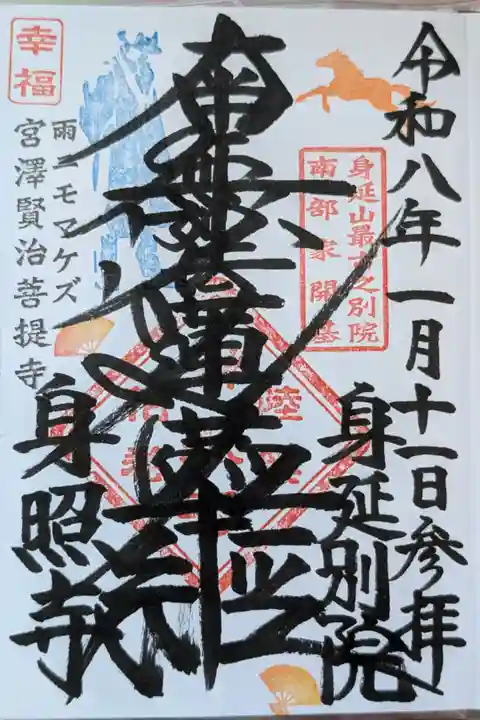 令和八年一月十一日参拝
身延山最古之別院
南部家開基
身延別院
南無妙法蓮華経
幸福
雨ニモマケズ
宮澤賢治菩提寺
身照寺